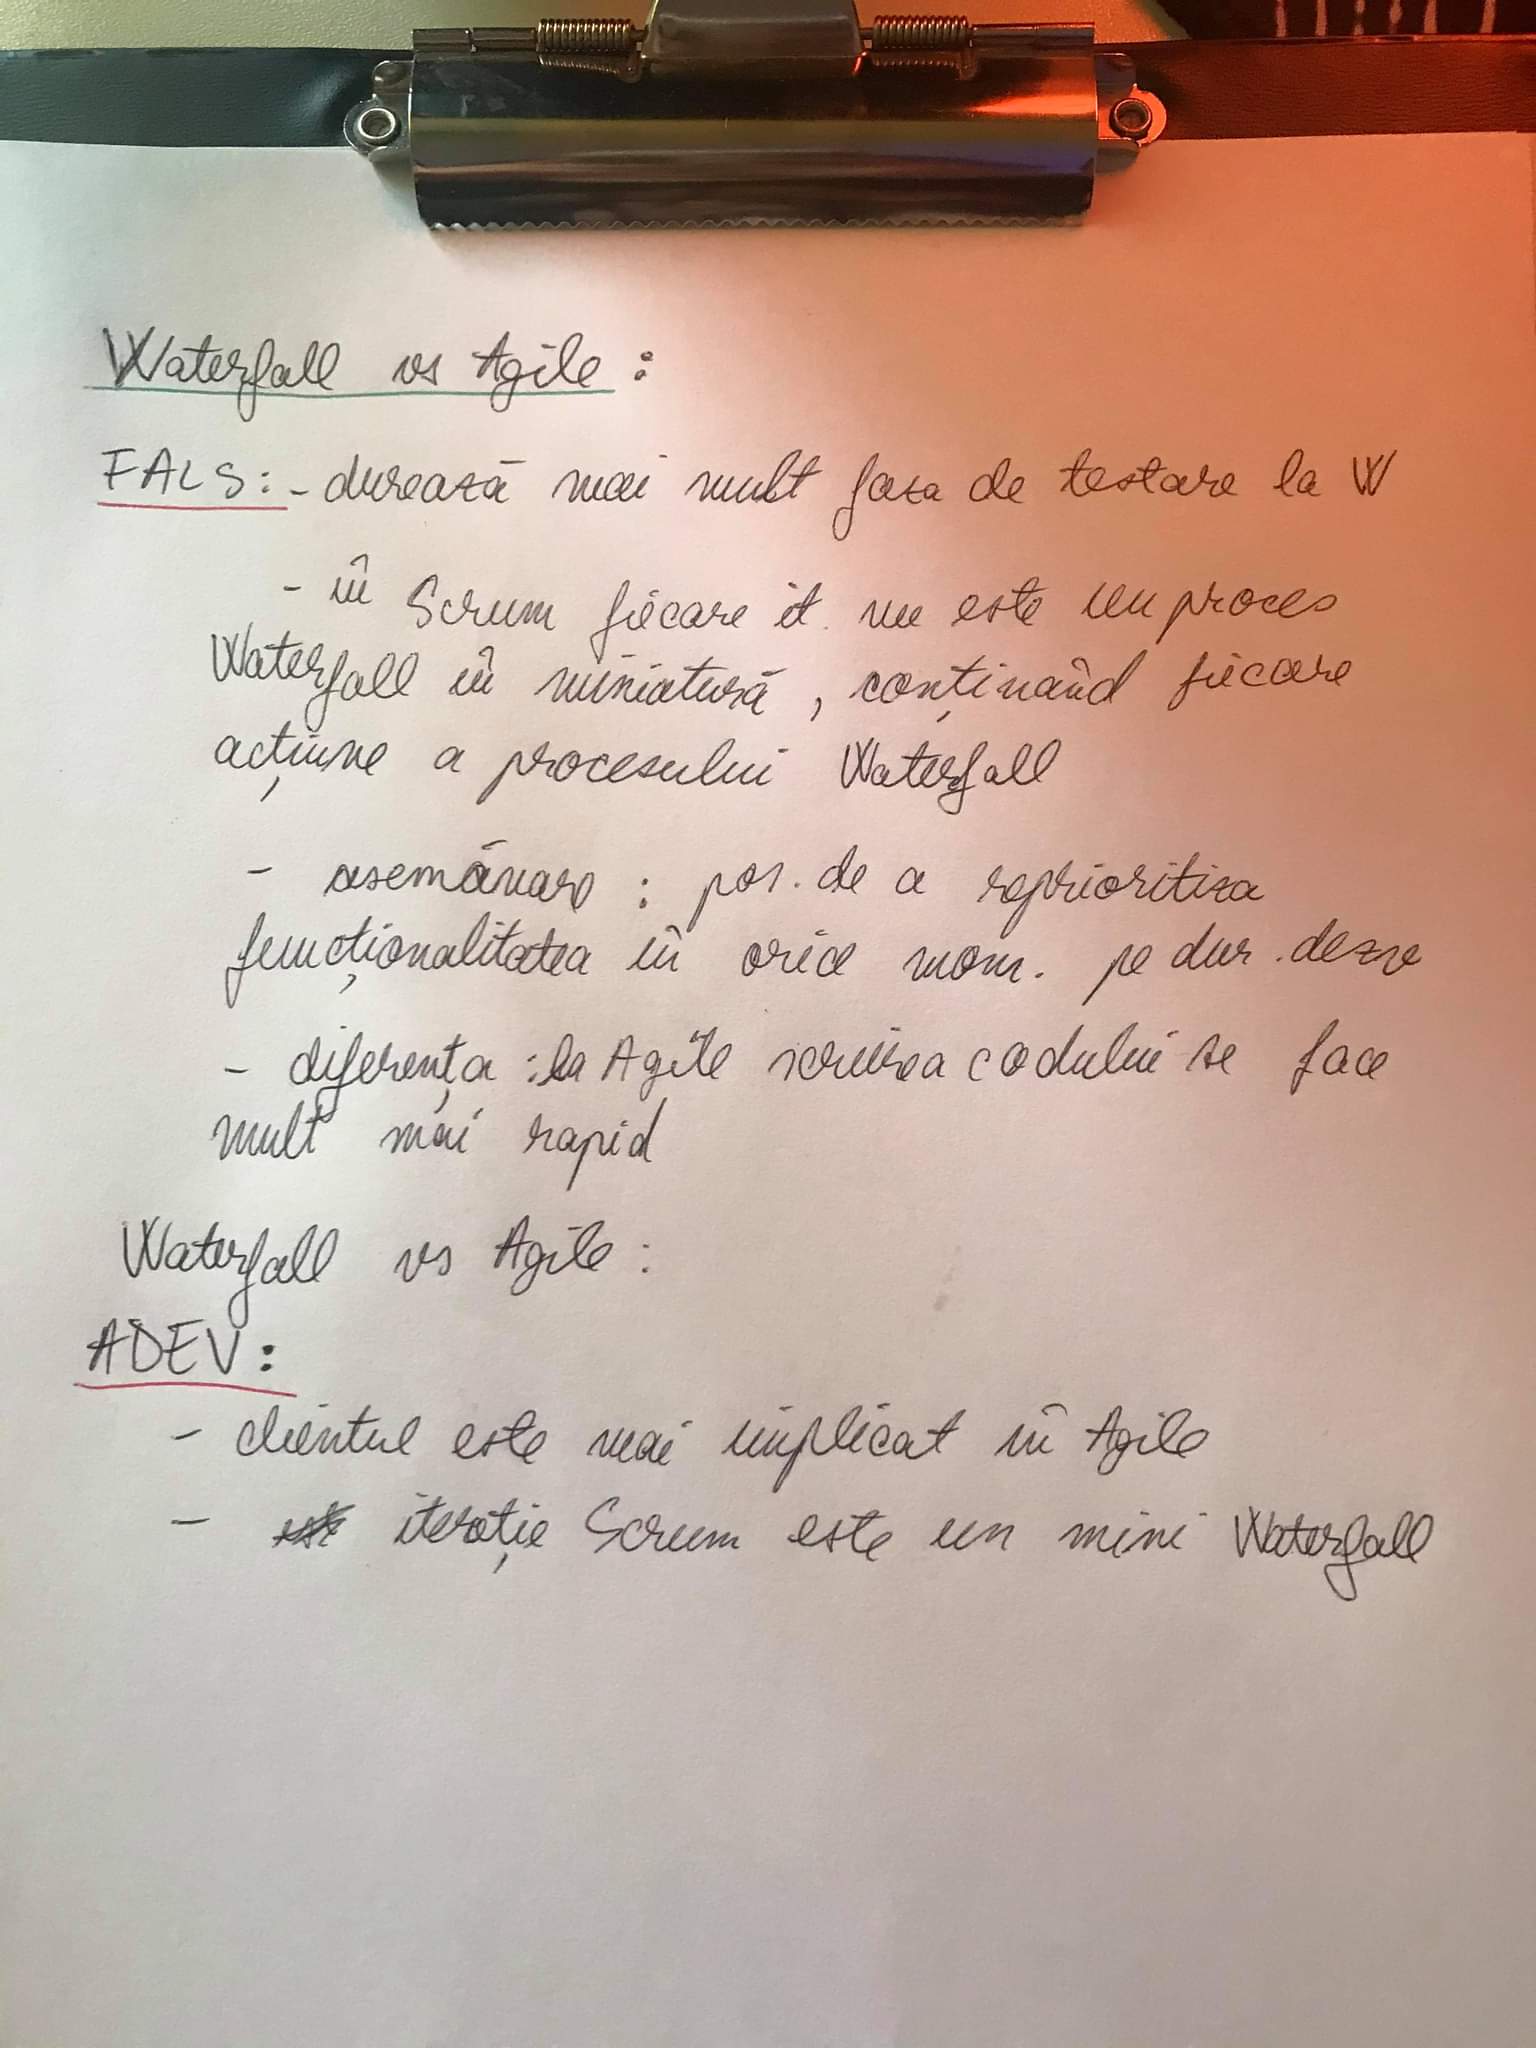 Waterfall vs Agile :
FALS: - durează mai mult faza de testare la W
- în Scrum fiecare it. nu este un proces
Waterfall în miniatură, conținând fiecare
acțiune a procesului Waterfall
- asemănare : pos. de a reprioritiza
funcționalitatea în orice mom. pe dur. dezv
- diferența : la Agile scrierea codului se face
mult mai rapid
Waterfall vs Agile :
ADEV :
- clientul este mai implicat în Agile
- iterație Scrum este un mini Waterfall